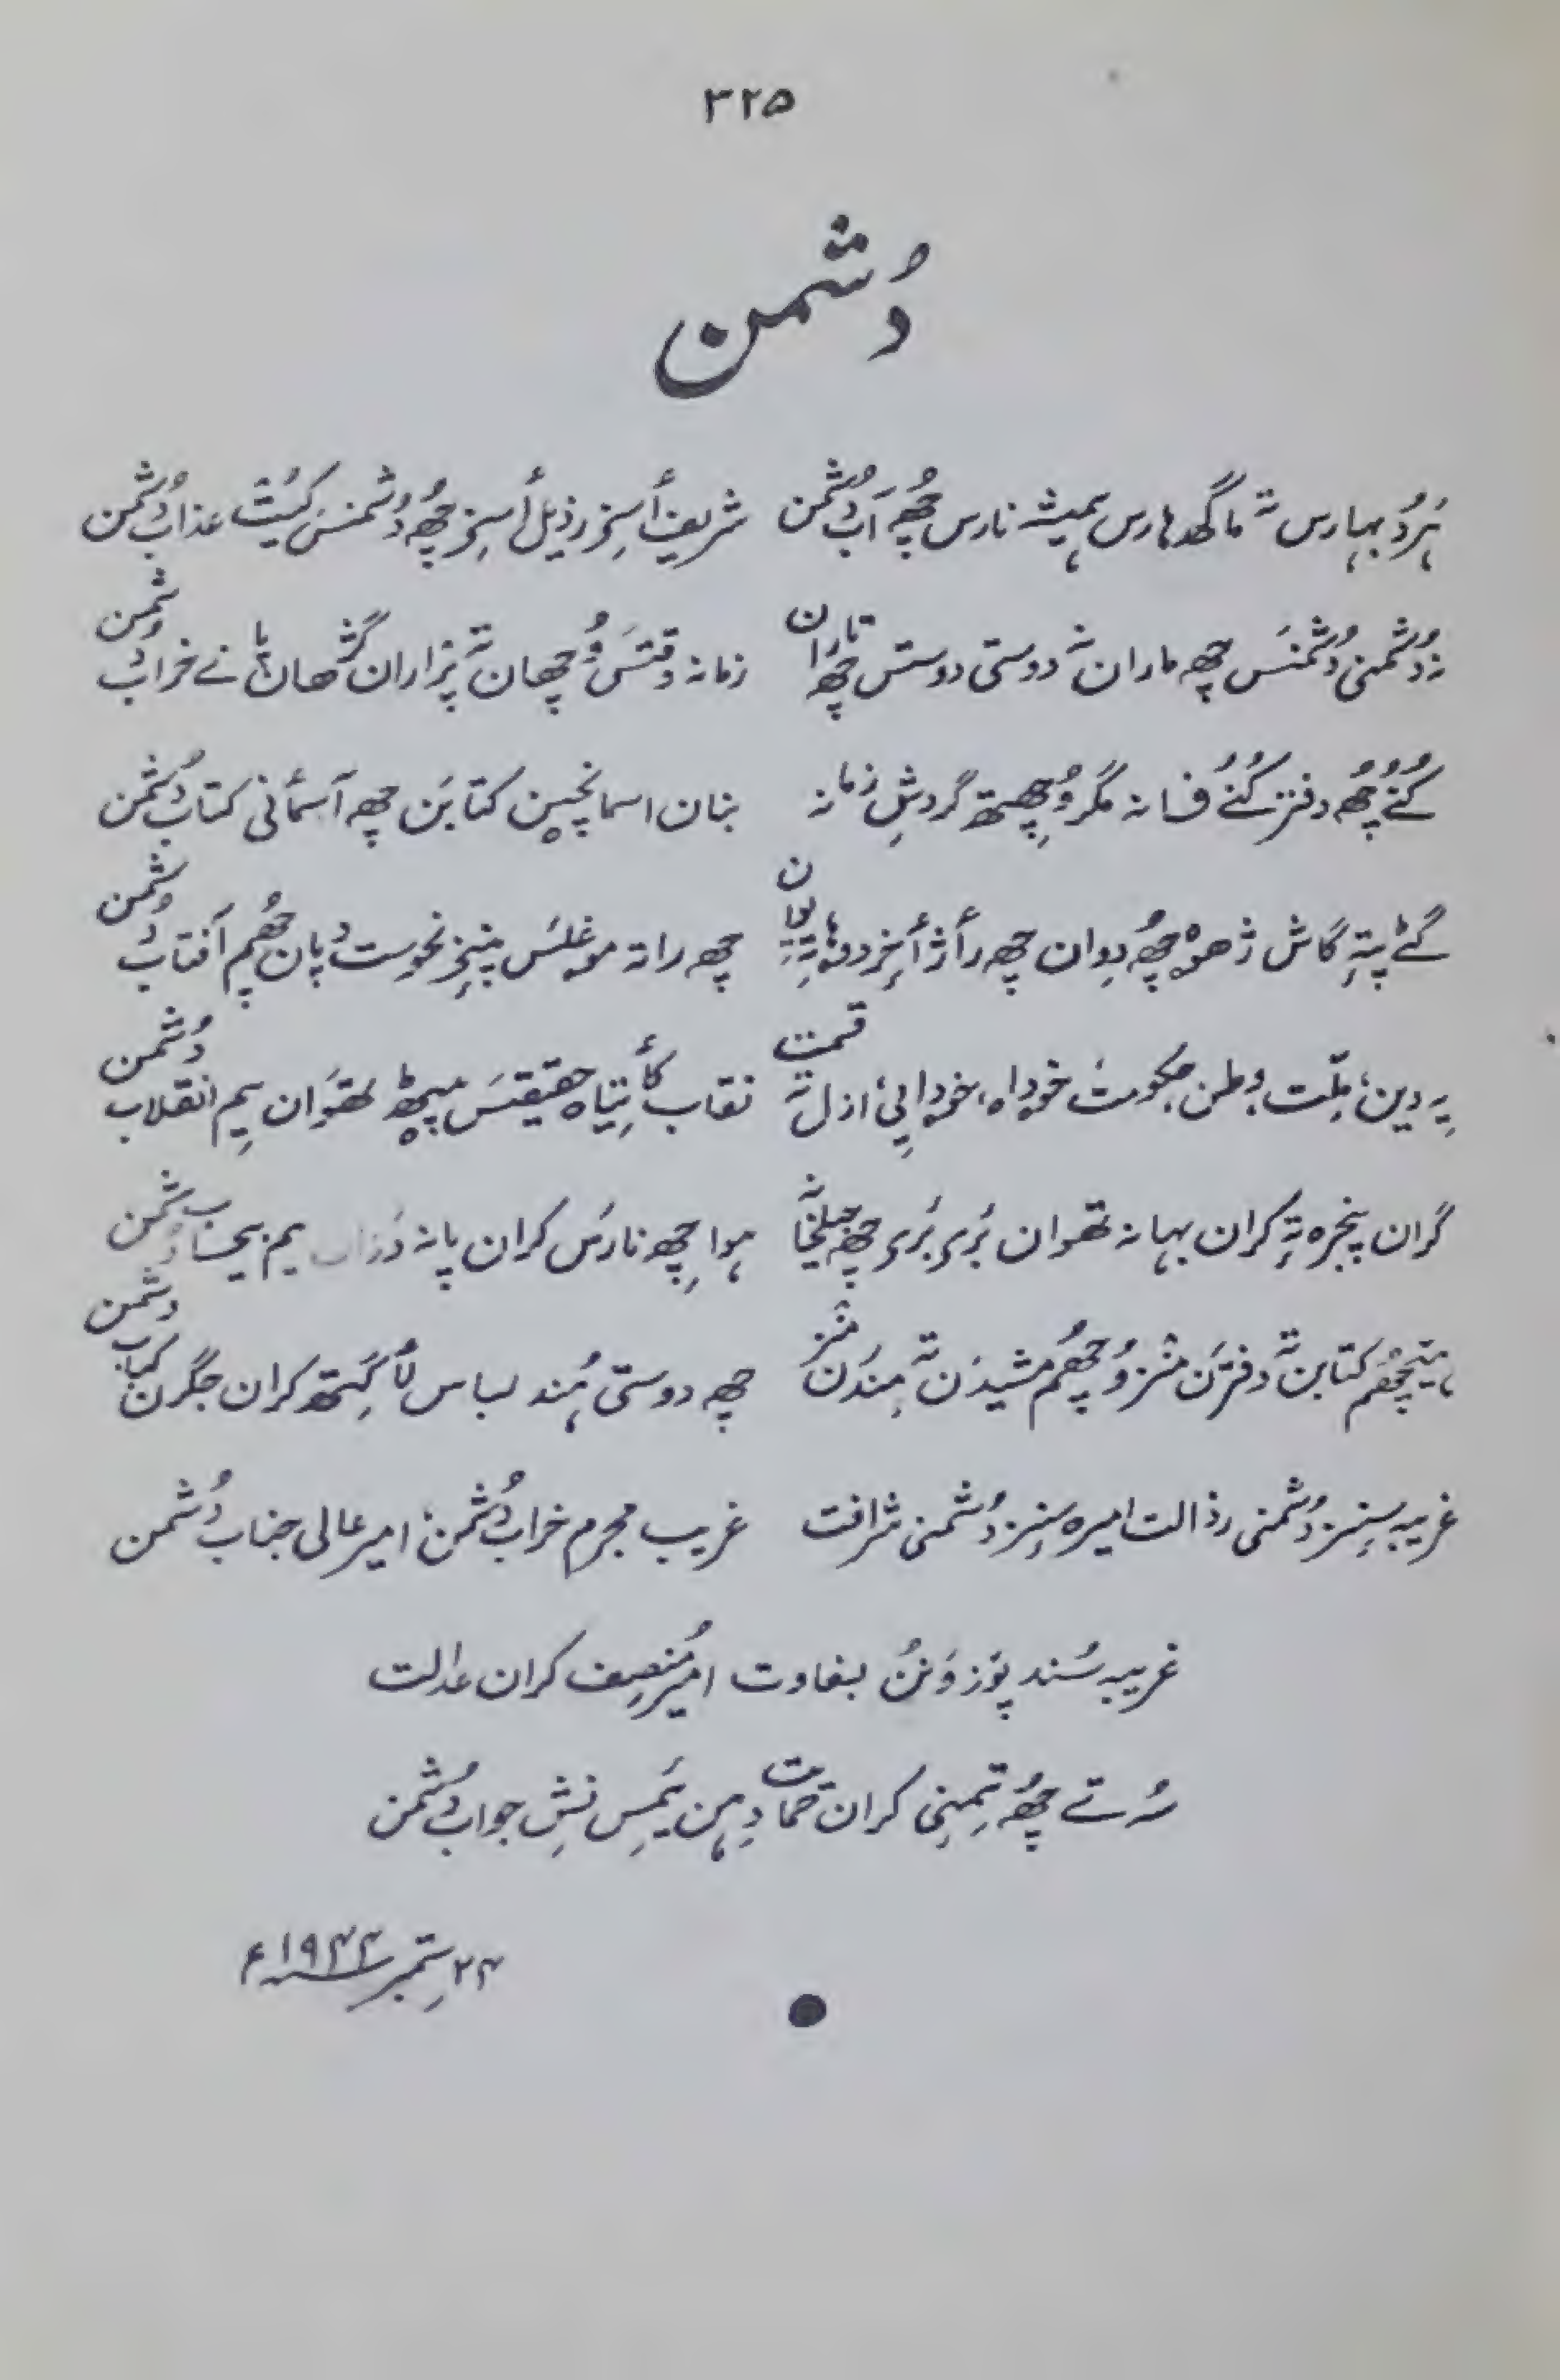 ۳۲۵
دُشمن
ہَردُ بہارس تہٕ ماگھ ہارس ہمیشہ نارس چھُ آب دُشمن شریف أسِز رذیل أسِز چھُ دُشمنسٔ کیُت عذاب دُشمن
نہ دُشمنی دُشمنَس چھِ ماران تہٕ دوستی دوستس چھِ تاران زمانہ وقتَس وُچھان تہٕ پژاران گژھان نے خراب دُشمن
کُنُے چھُ دفتر کُنُے فسانہ مگر وُچھِتھ گردشِ زمانہ بنان اسمانچین کتابَن چھِ آسمأنی کتاب دُشمن
گٹے پتہٕ گاش ژھوہ چھُ دِوان چھِ رأژ أخِر دوہا تہِ یوان چھِ راتہٕ موغلَس پننِۍ نحوست دپان چھُم آفتاب دُشمن
یہِ دین، مِلّت، وطن، حکومت، خوداہ، خودایی، ازل تہٕ قسمت نقاب کأتیاہ حقیقتَس پیٹھ تھوَان یِم انقلاب دُشمن
گران پنجرہ تہٕ کران بہانہ تھوان بَری بَری چھِ جیلخانہٕ ہوا چھِ نارَس کران پانہ یم بےحساب دُشمن
کتابن تہٕ دفترَن منز وُچھم مشیدَن تہٕ مندَرن منز چھِ دوستی ہُند لباس لأگِتھ کران جگرن کباب دشمن
غریبہ سِنز دُشمنی رذالت امیرہ سِنز دُشمنی شرافت غریب مجرم خراب دُشمن، امیر عالی جناب دُشمن
غریبہ سُند پوز وَنُن بغاوت امیُر منصِف کران عدالت
سُہ تے چھُ تِمنِی کران حمایت دِہن یَمِس نِش جواب دُشمن
۲۴ ستمبر ۱۹۴۴ء